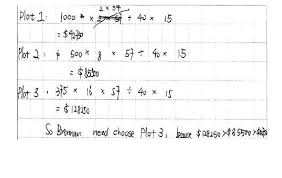 2 × 57
Plot 1: 1000 × ÷ 40 × 15
Plot 2: 500 × 8 × 57 ÷ 40 × 15
= $85500
Plot 3: 375 × 16 × 57 ÷ 40 × 15
= $128250
So Brennan need choose Plot 3, $128250 > $85500 >